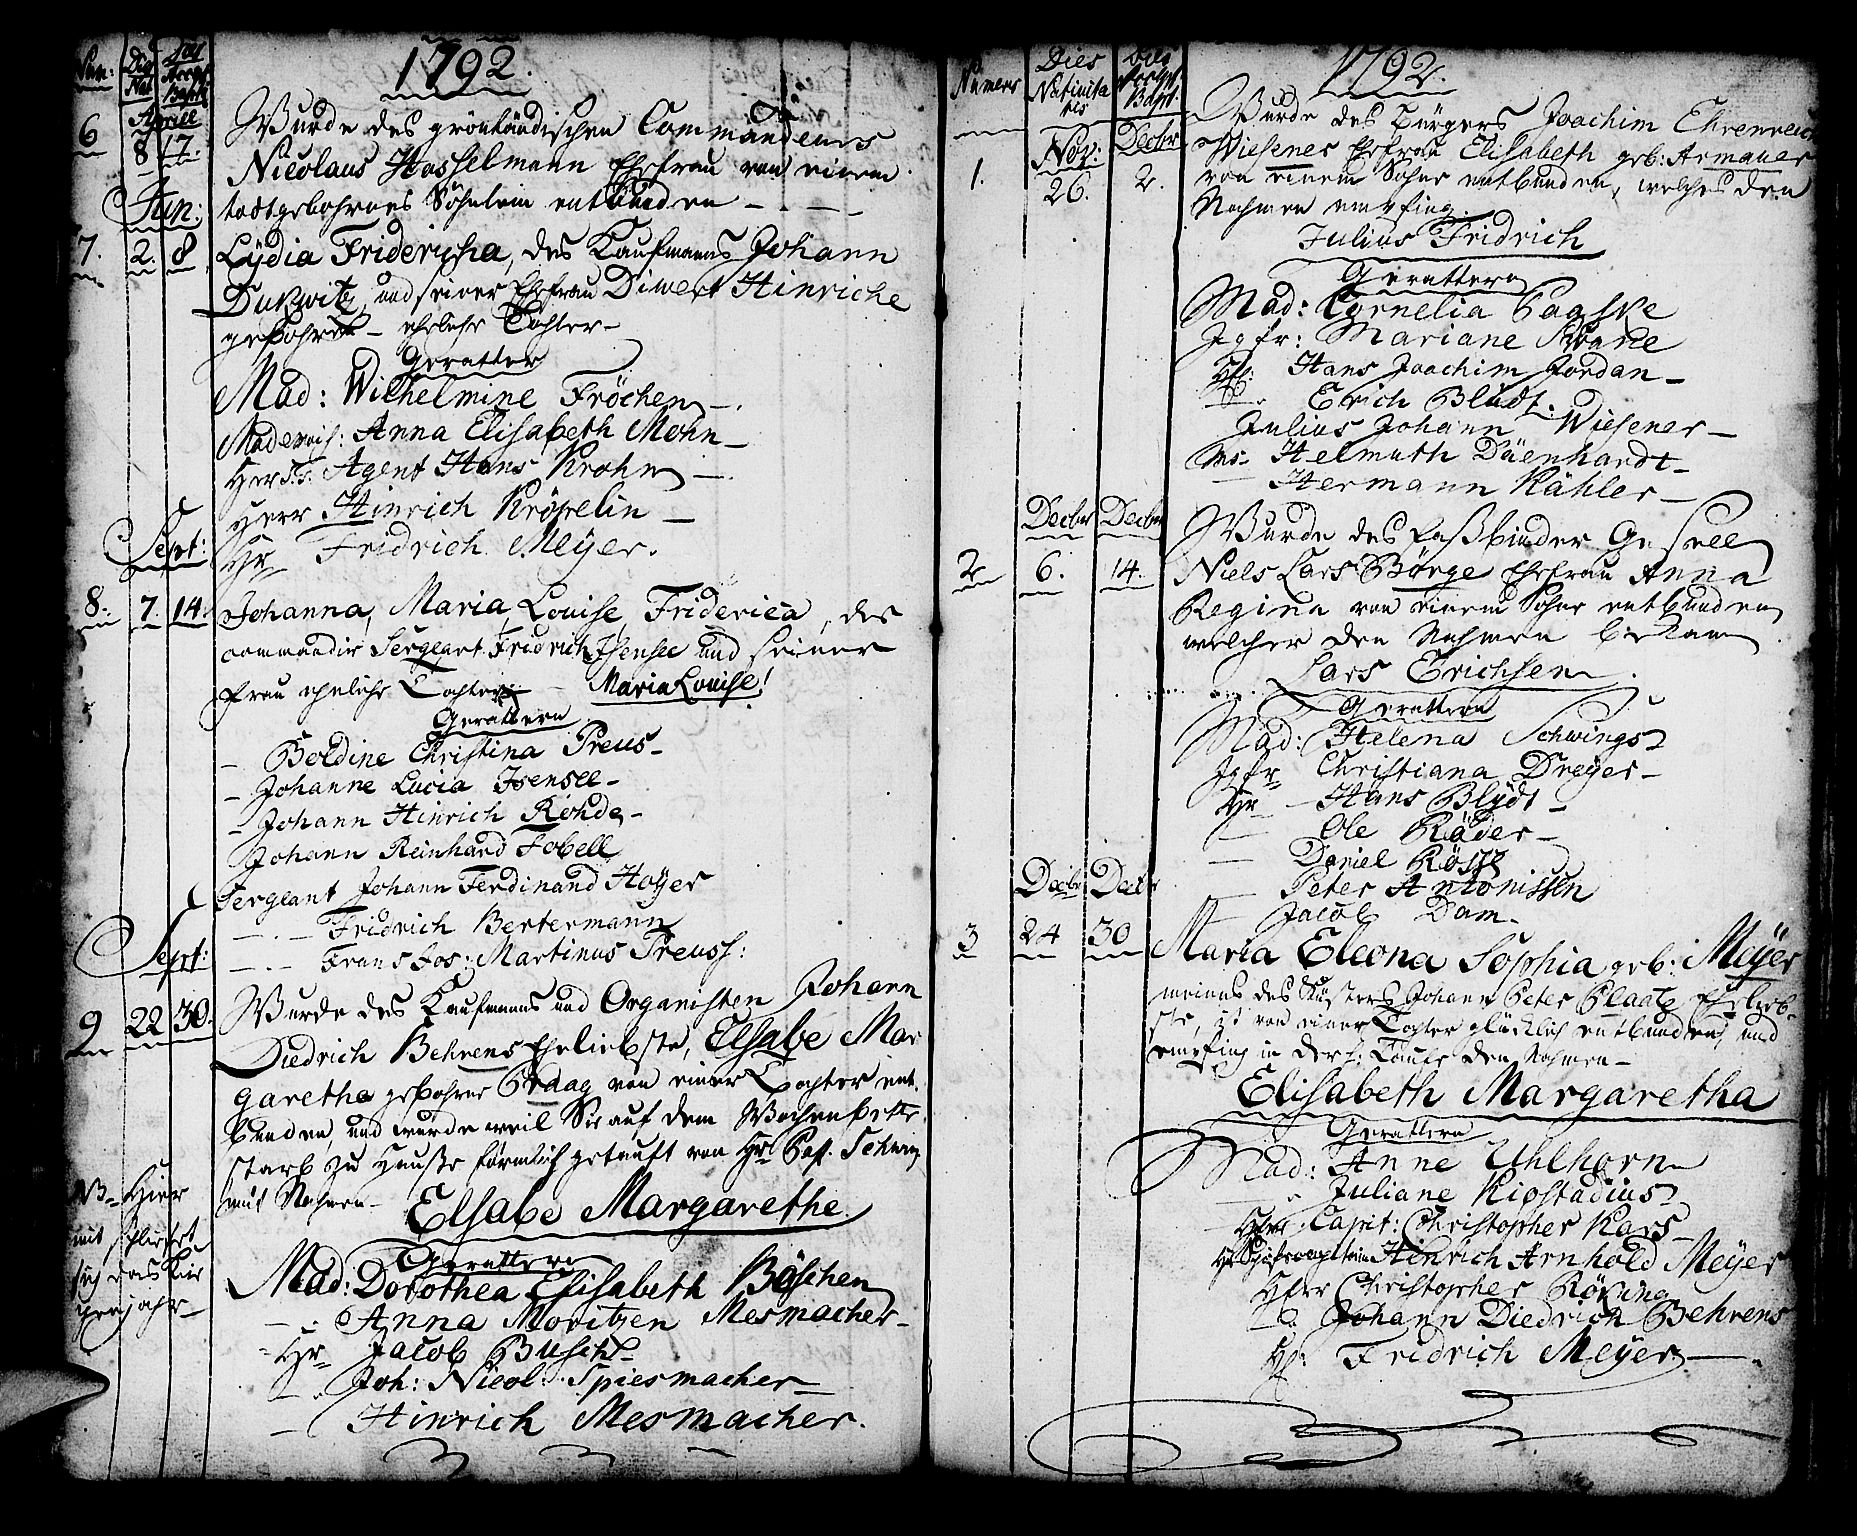 Num: Die Nat Dies Accep Bapt
1792.
Aprill
6 8 17. Wurde des grönländischen Commandeurs
Nicolaus Hasselmann Ehefrau von einem
todtgebohrnes Söhnlein entbunden
Jun:
7. 2. 8 Lydia Fridericha, des Kaufmanns Johann
Duckwitz, und seiner Ehefrau Diwert Hinriche
gebohren ehelichs Tochter
Gevatter
Mad: Wilhelmine Fröchen
Anna Elisabeth Mohn
Herr Agent Hans Krohn
Herr Hinrich Kröpelin
Hr Fridrich Meyer.
Sept:
8. 7. 14. Johanna, Maria, Louise, Friderica, des
commandir Sergeant Fridrich Isensee und seiner
Frau ehelichs Tochter Maria Louise!
Gevattern
Boldine Christina Preus
Johanne Lucia Isensee
Johann Hinrich Rohde
Johann Reinhard Fobell
Sergeant Johann Ferdinand Hoyer
Fridrich Bertermann
Frans Jos: Martinus Preuss:
Sept:
9 22 30. Wurde des Kaufmanns und Organisten Johann
Diedrich Behrens Eheliebste, Elsabe Mar
garetha gebohrne Praag von einer Tochter ent
bunden, und wurde weil Sie auf dem Wochenbette
starb zu Hause förmlich getauft von Hr Past. Schwing
mit Nahmen Elsabe Margarethe.
NB Hier
mit schliest
sich das Kir
chenjahr
Gevattern
Mad: Dorothea Elisabeth Böschen
Anna Moritzen Mesmacher
Hr Jacob Busch
Joh: Nicol: Spiesmacher
Hinrich Mesmacher.
Numero Dies Nativita tis Dies Accept Bapt
1792.
Nov: Decbr
1. 26. 2. Wurde des Bürgers Joachim Ehrenreich
Wiesener Ehefrau Elisabeth geb: Armauer
von einem Sohne entbunden, welches den
Nahmen empfing
Julius Fridrich
Gevattern
Mad: Cornelia Paaske
Jgfr: Mariane
Hr: Hans Joachim Jordan
Erich Blüdt
Julius Johann Wiesener
Ms Helmuth Däenhardt
Hermann Kähler
Decbr Decbr
2 6. 14. Wurde des Faßbinder Gesell
Niels Lars Börge Ehefrau Anna
Regina von einem Sohne entbunden
welcher den Nahmen bekam
Lars Erichsen.
Gevattern
Mad: Helena Schwings
Jgfr Christiana Dreyer
Hr Hans Blydt
Ole Räder
Daniel
Peter Antonissen
Jacob Dam
Decbr Decbr
3 24 30 Maria Eleona Sophia geb: Meyer
meines des Küsters Johann Peter Plaatz Ehelieb
ste, ist von einer Tochter glücklich entbunden, und
empfing in der h: Taufe den Nahmen
Elisabeth Margaretha
Gevattern
Mad: Anne Uhlhorn
Juliane Kipstadius
Herr Capit: Christopher Kars
Hr Schifscapitain Hinrich Arnhold Meyer
Herr Christopher Röving
Johann Diedrich Behrens
Hr: Fridrich Meyer